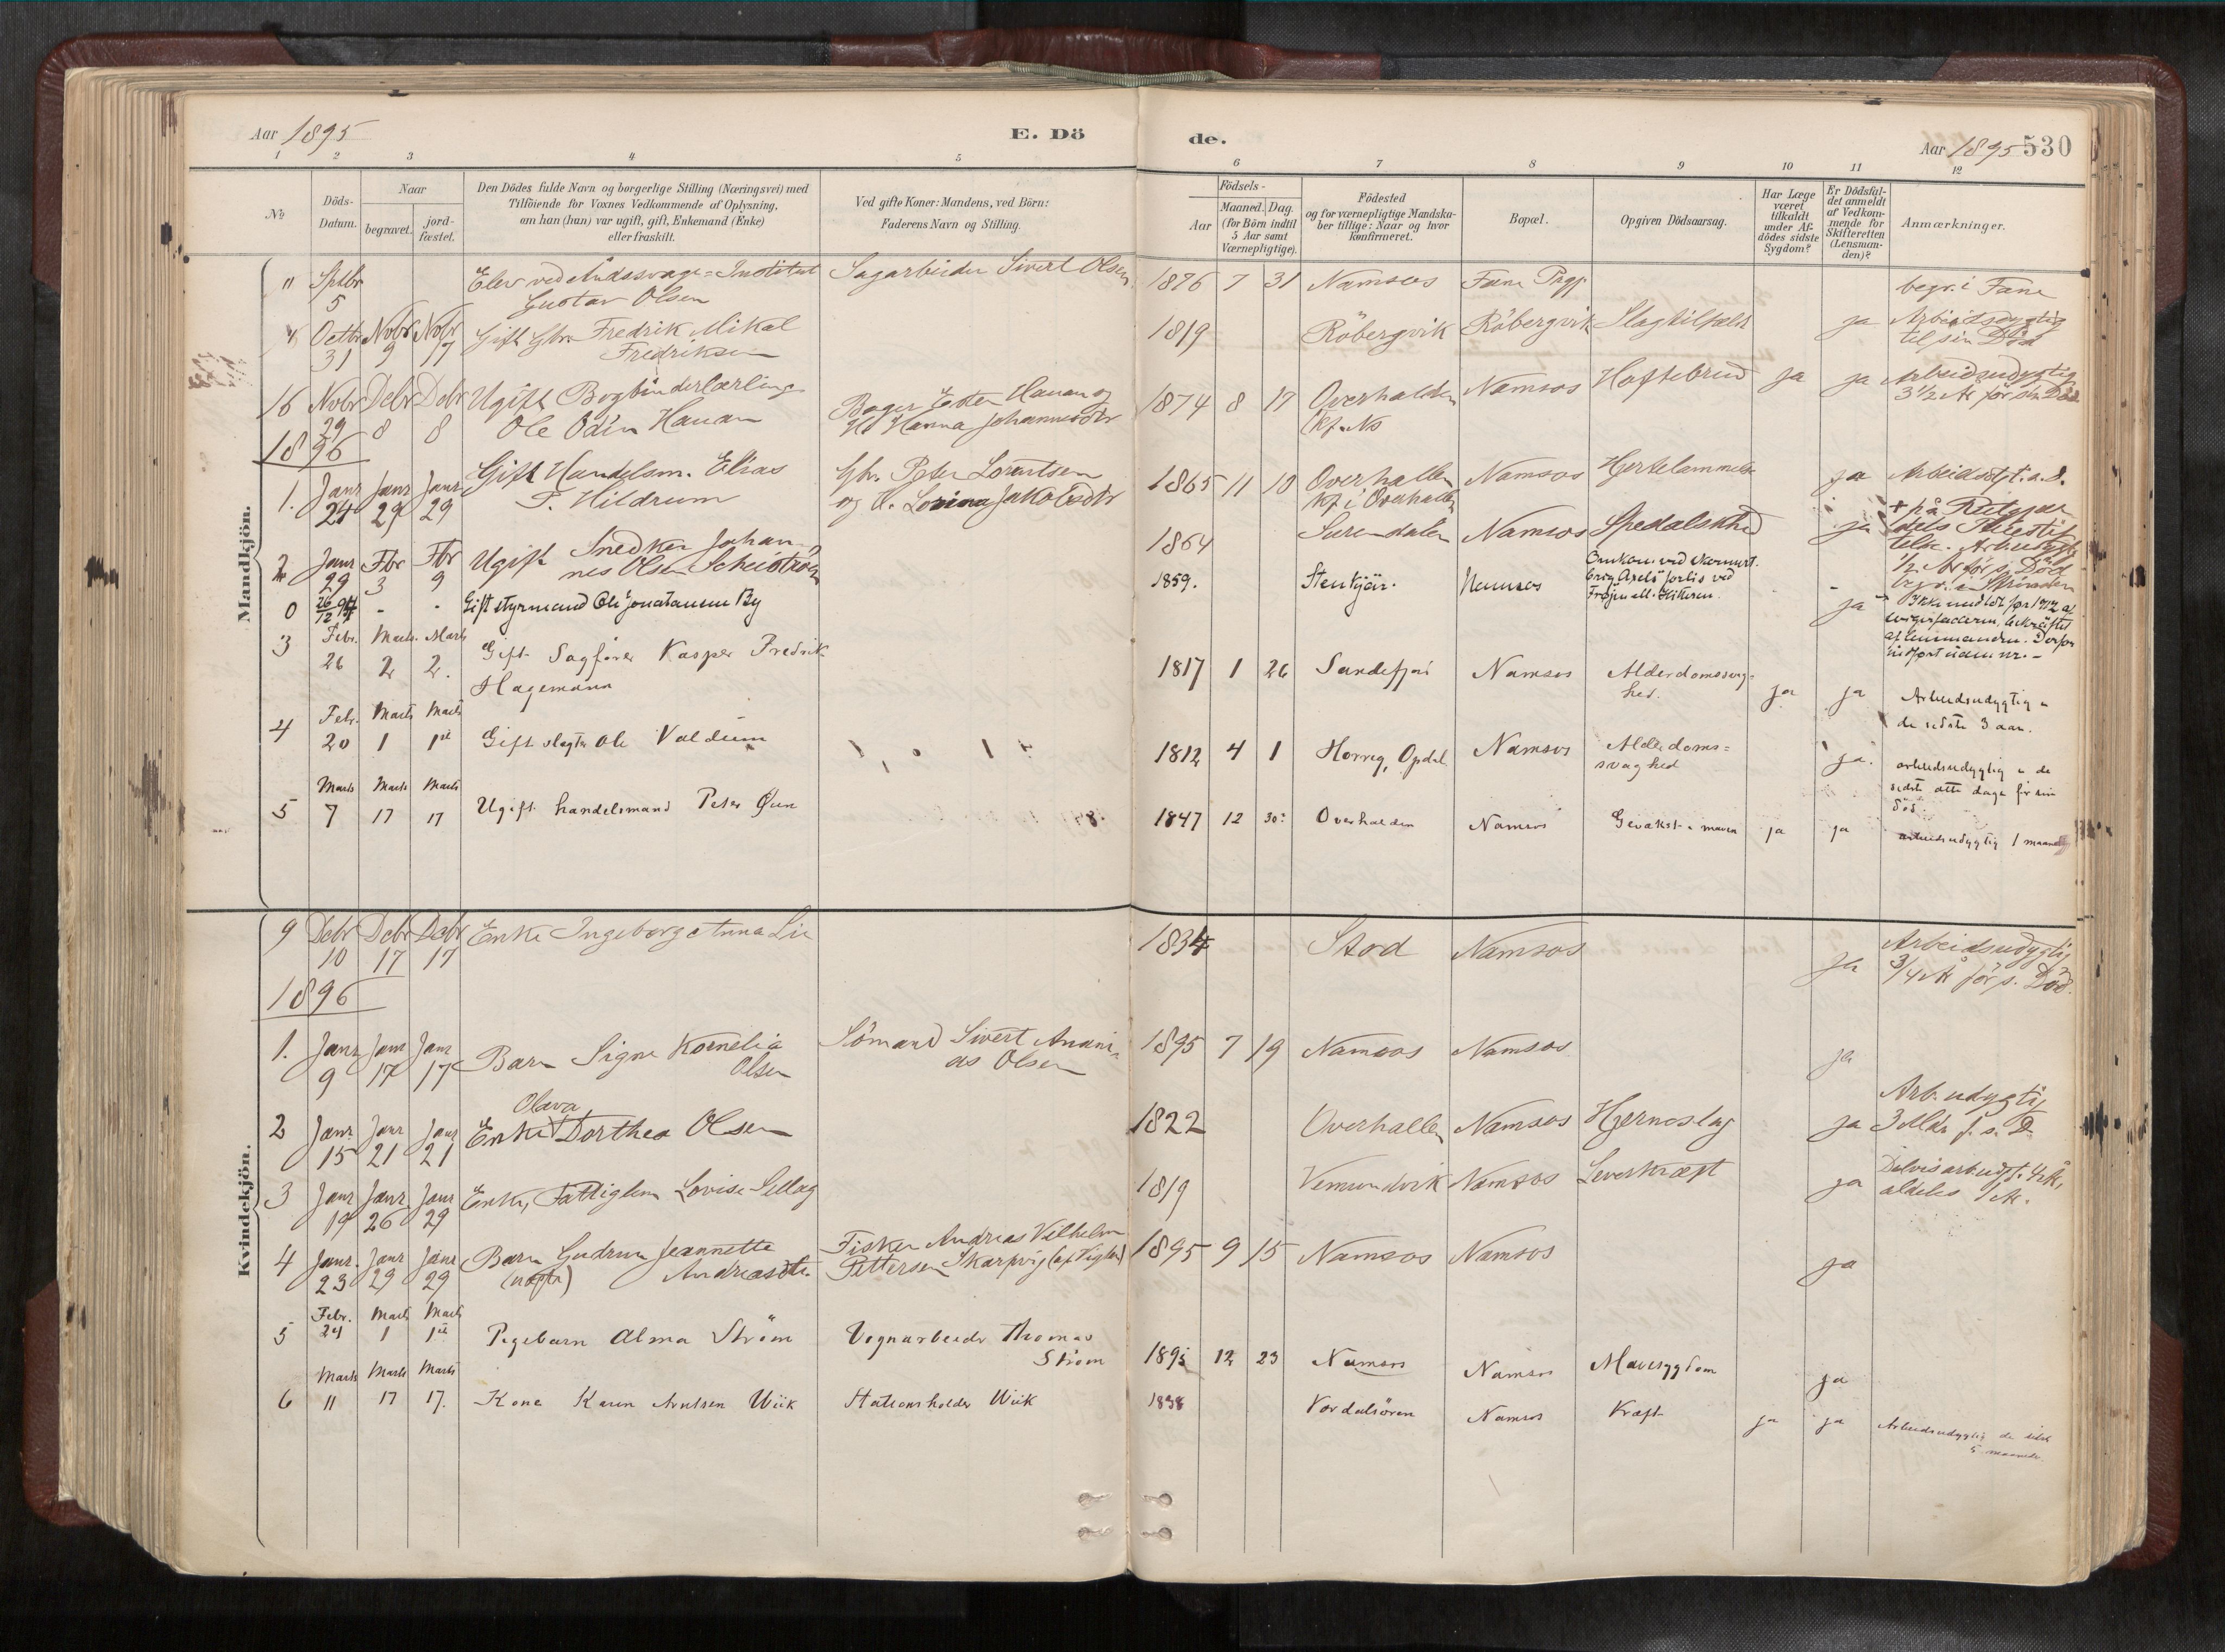 Aar 1895
E. Dö
de.
Aar 1895 530
1 2 3 4 5 6 7 8 9 10 11 12
№
Döds-
Datum.
Naar
begravet.
jord-
fæstet.
Den Dödes fulde Navn og borgerlige Stilling (Næringsvei) med
Tilföiende for Voxnes Vedkommende af Oplysning,
om han (hun) var ugift, gift, Enkemand (Enke)
eller fraskilt.
Ved gifte Koner: Mandens, ved Börn:
Faderens Navn og Stilling.
Födsels-
Aar
Maaned. Dag.
(for Börn indtil
5 Aar samt
Værnepligtige).
Födested
og for værnepligtige Mandska-
ber tillige: Naar og hvor
konfirmeret.
Bopæl.
Opgiven Dödsaarsag.
Har Læge
været
tilkaldt
under Af-
dödes sidste
Sygdom?
Er Dödsfal-
det anmeldt
af Vedkom-
mende for
Skifteretten
(Lensman-
den)?
Anmærkninger.
Mandkjön.
" Sptbr Elev ved Åndssvage=Institut Sagarbeider Sivert Olsen 1876 7 31 Namsos Fane Prgj begr. i Fane
5 Gustav Olsen
Octbr Novbr Novbr Gift Gbr. Fredrik Mikal 1819 Röbergvik Röbergvik Slagtilfælde ja Arbeidsdygtig
31 9 17 Fredriksen til sin Död
16 Nobr Debr Debr Ugift Bogbinderlærling Bager Ester Hauan og 1874 8 17 Overhalden Namsos Hoftebrud ja ja Arbeidsudygtig
29 8 8 Ole Odin Hauan H. Hanna Johannesdtr Kf. Ns 3 1/2 År för sin Död
1896
1. Janr Janr Janr Gift Handelsm. Elias Gbr. Peter Lorentsen 1865 11 10 Overhallen Namsos Hjertelammelse ja Arbeidsdgt. t. s. d.
24 29 29 P. Hildrum og H. Lorina Jakobsdtr Kf. i Overhallen
2 Janr Fbr Fbr Ugift Snedker Johan- 1864 Surendalen Namsos Spedalskhed ja + på Reitgjær
29 3 9 nes Olsen Scheiström
1/2 År för s. Död
0 26/12 94 - - Gift styrmand Ole Jonatansen By 1859. Stenkjær. Namsos Omkom ved Namsos. ja
brig Axels forlis ved
Fröjen ell. Hitteren.
af lensmanden. Derfor
indfört uden nr. -
3 Febr. Marts Marts Gift Sagförer Kasper Fredrik 1817 1 26 Sandefjord Namsos Alderdomssvag= ja ja Arbeidsudygtig i
26 2 2. Hagemann hed. de sidste 3 aar.
4 Febr. Marts Marts Gift slagter Ole Valdum 1812 4 1 Horrig, Opdal Namsos Alderdoms= ja. arbeidsudygtig i de
20 1 1ste svaghed sidste otte dage för sin
död.
5 Marts Marts Marts Ugift handelsmand Peter Öun 1847 12 30 Overhalden Namsos Gevækst i maven ja ja arbeidsudygtig 1 maaned
7 17 17
Kvindekjön.
9 Debr Debr Debr Enke Ingeborg Anna Lie 1834 Stod Namsos ja Arbeidsudygtig
10 17 17 3/4 År för s. Död.
1896
1. Janr Janr Janr Barn Signe Kornelia Sömand Sivert Anani- 1895 7 19 Namsos Namsos ja
9 17 17 Olsen as Olsen
2 Janr Janr Janr Enke Olava Dorthea Olsen 1822 Overhallen Namsos Hjerneslag ja Arb. udygtig
15 21 21 3 Mdr f. s. D
3 Janr Janr Janr Enke, Fattiglem Lovise Sellæg 1819 Vemundvik Namsos Leverkræft ja Delvis arbudgt. 4 År,
19 26 29 aldeles 1 År.
4 Janr. Janr Janr Barn Gudrun Jeannette Fisker Andreas Vilhelm 1895 9 15 Namsos Namsos ja
23 29 29 (uægte) Andreasdtr. Pettersen Skarpvig (af Vigten)
5 Febr. Marts Marts Pigebarn Alma Ström Vognarbeider Thomas 1895 12 23 Namsos Namsos Mavesygdom ja
24 1 1ste Ström
6 Marts Marts Marts Kone Karen Arntsen Wiik Stationsholder Wiik 1838 Verdalsören Namsos Kræft ja ja Arbeidsudygtig de sidste
11 17 17. 5 maaneder.